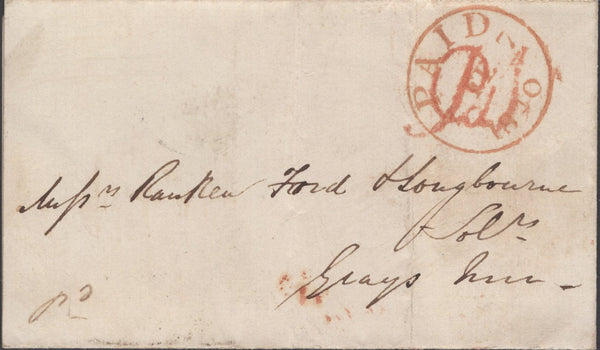 PAID
Messrs Ranken Ford & Longbourne
Solrs
Grays Inn -
pd